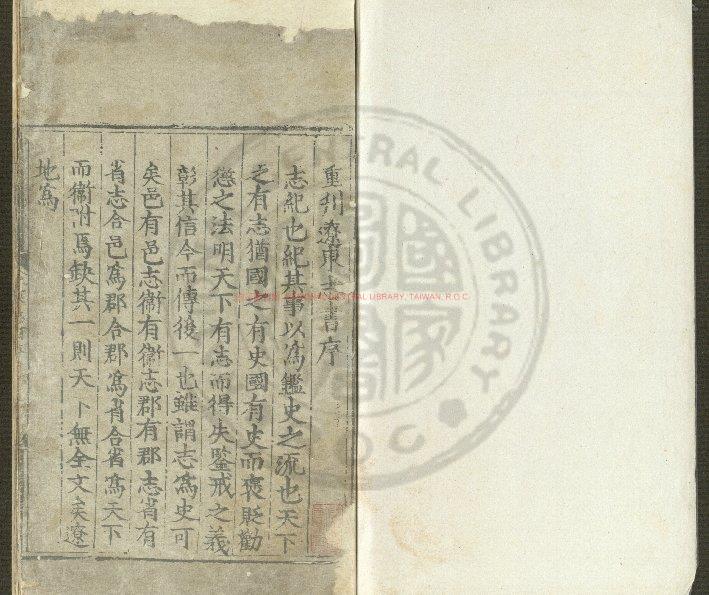 重刋遼東志書序
志紀也紀其事以為鑑史之流也天下
之有志猶國之有史國有史而襃貶勸
懲之法明天下有志而得失鑒戒之義
彰其信今而傳後一也雖謂志為史可
矣邑有邑志衛有衛志郡有郡志省有
省志合邑為郡合郡為省合省為天下
而衛附焉缺其一則天下無全文矣遼
地為
CENTRAL LIBRARY
NATIONAL CENTRAL LIBRARY, TAIWAN, R.O.C